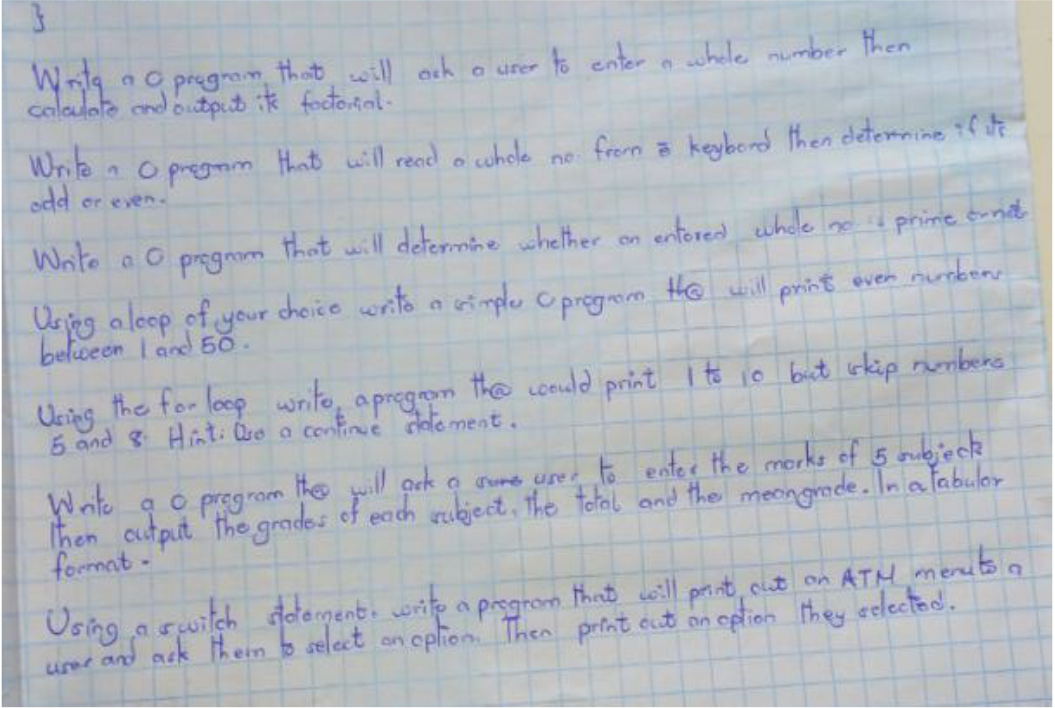 }
Write a C program that will ask a user to enter a whole number then
calculate and output its factorial.
Write a C program that will read a whole no. from a keybord then determine if its
odd or even.
Write a C program that will determine whether an entered whole no. is prime or not
Using a loop of your choice write a simple C program th@ will print even numbers
between 1 and 50.
Using the for loop write a program th@ would print 1 to 10 but skip numbers
5 and 8. Hint: Use a continue statement.
Write a C program th@ will ask a user to enter the marks of 5 subjects
then output the grades of each subject, the total and the meangrade. In a tabular
format.
Using a switch statement. write a program that will print out an ATM menu to a
user and ask them to select an option. Then print out an option they selected.